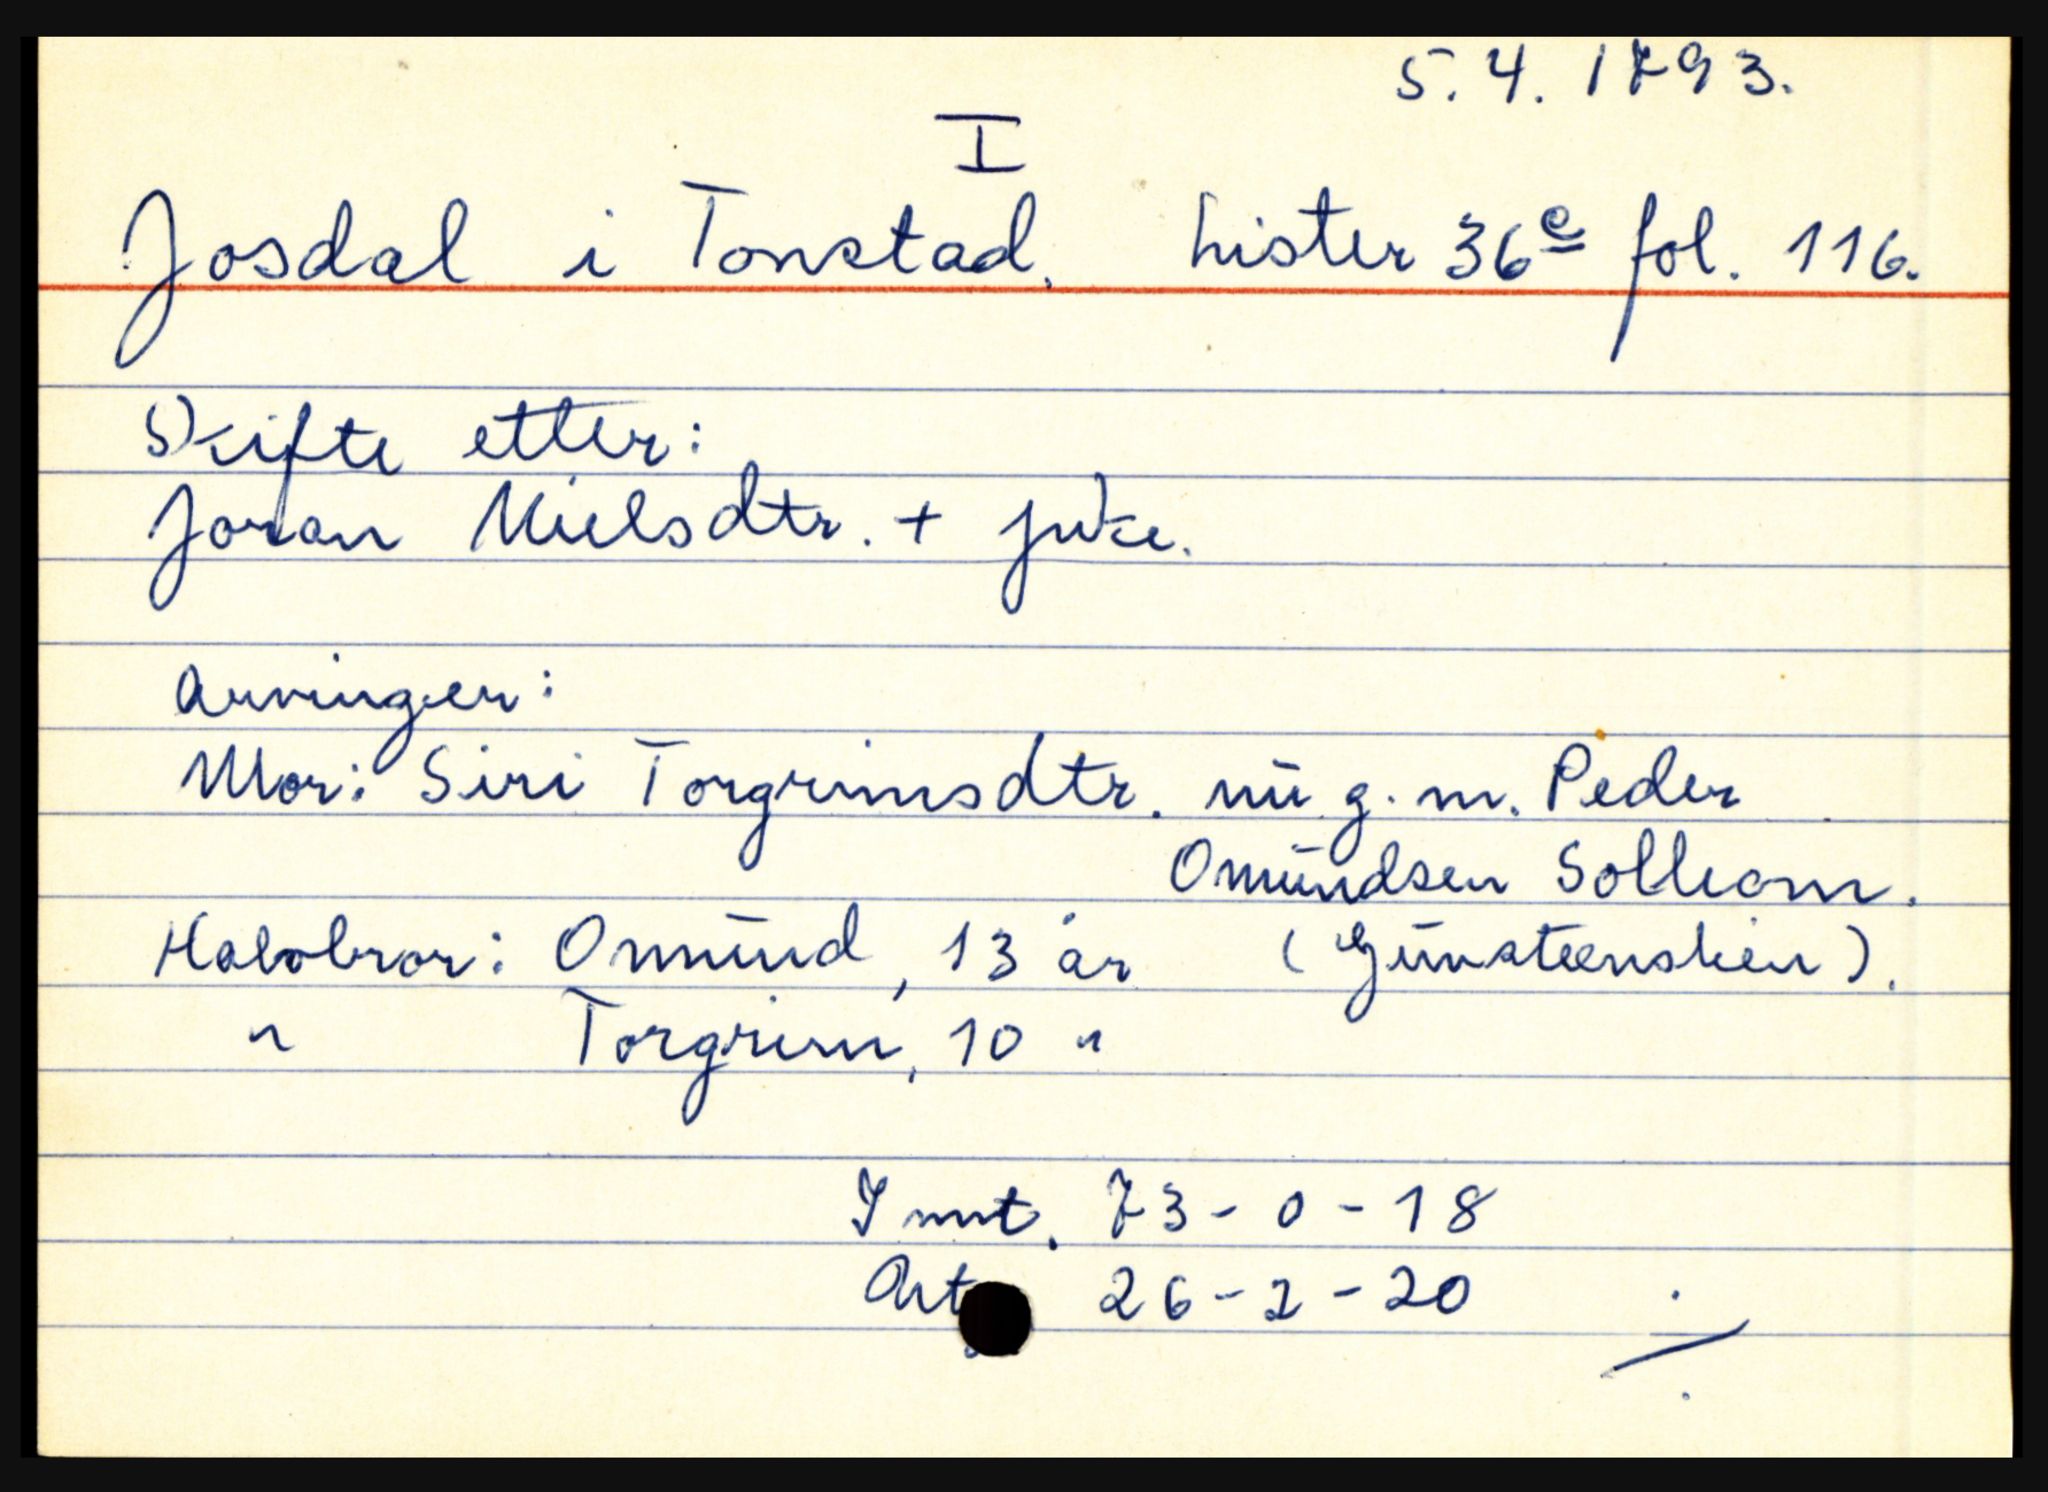 5.4.1793.
I
Josdal i Tonstad. Lister 36e fol. 116.
Skifte etter:
Joran Nielsdtr. + pike.
Arvinger:
Mor: Siri Torgrimsdtr. nu g.m. Peder
Omundsen Solleom.
Halvbror: Omund, 13 år (Gunsteenslien).
" Torgrim, 10 "
Innt. 73-0-18
26-2-20